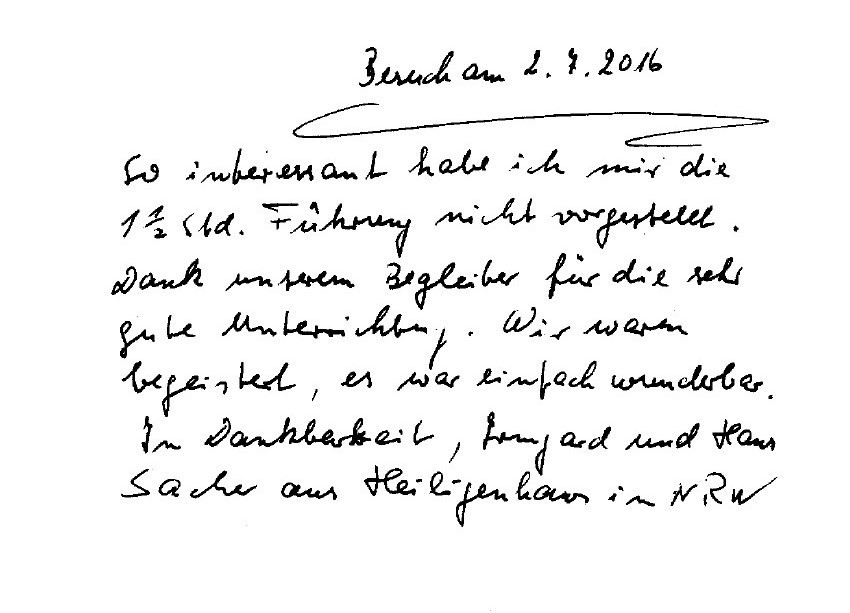 Besuch am 2.7.2016
So interessant habe ich mir die
1 1/2 Std. Führung nicht vorgestellt.
Dank unserem Begleiter für die sehr
gute Unterrichtung. Wir waren
begeistert, es war einfach wunderbar.
In Dankbarkeit, Irmgard und Hans
Sacher aus Heiligenhaus in NRW